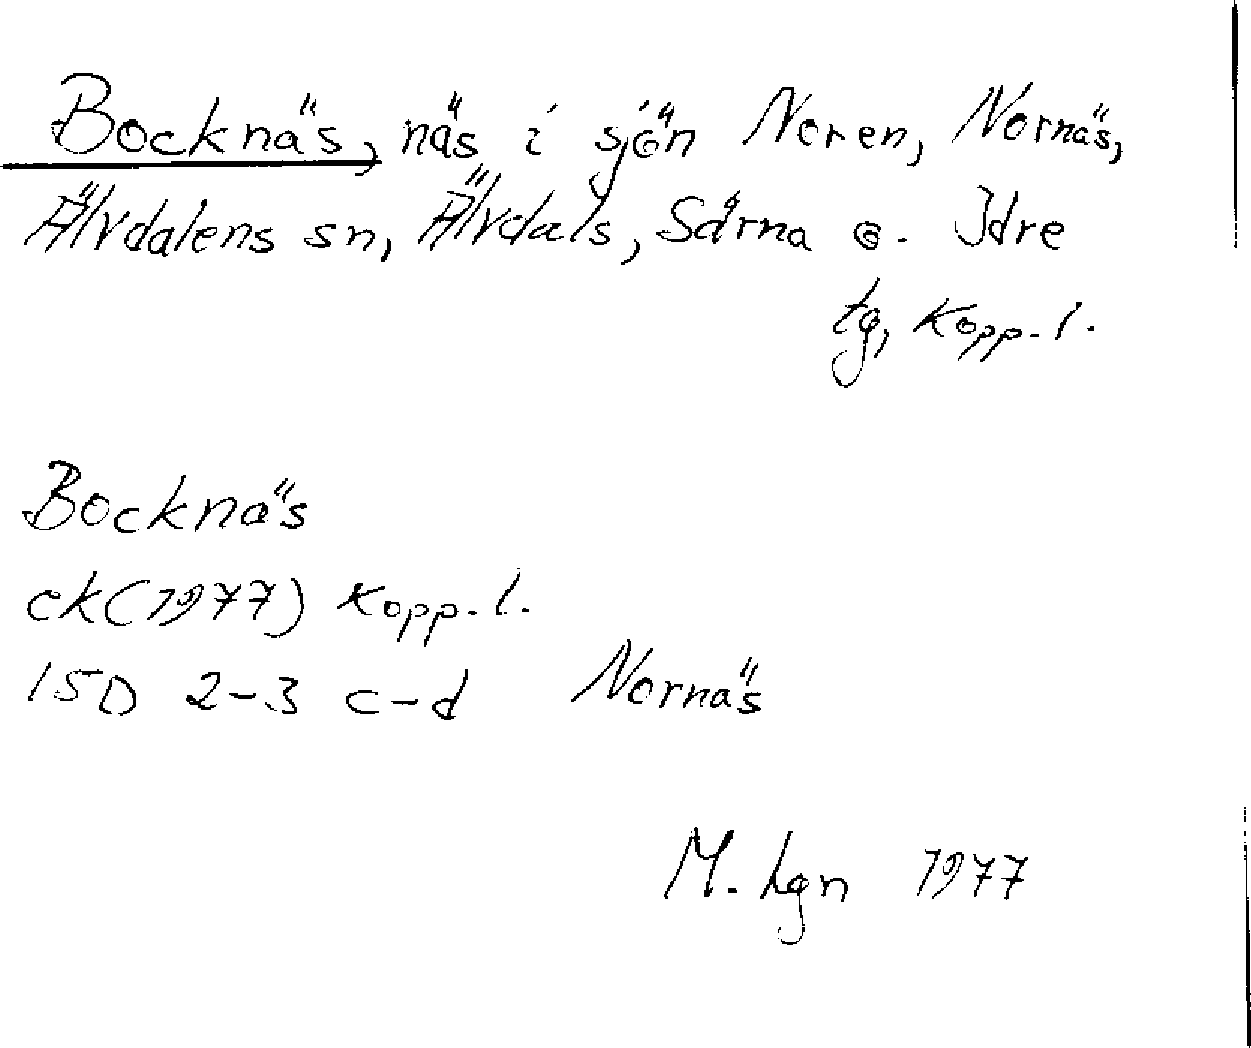 Bocknäs, näs i sjön Noren, Nornäs,
Älvdalens sn, Älvdals, Särna o. Idre
tg, Kopp. l.
Bocknäs
ek (1977) Kopp. l.
15D 2-3 c-d Nornäs
M. Lgn 1977